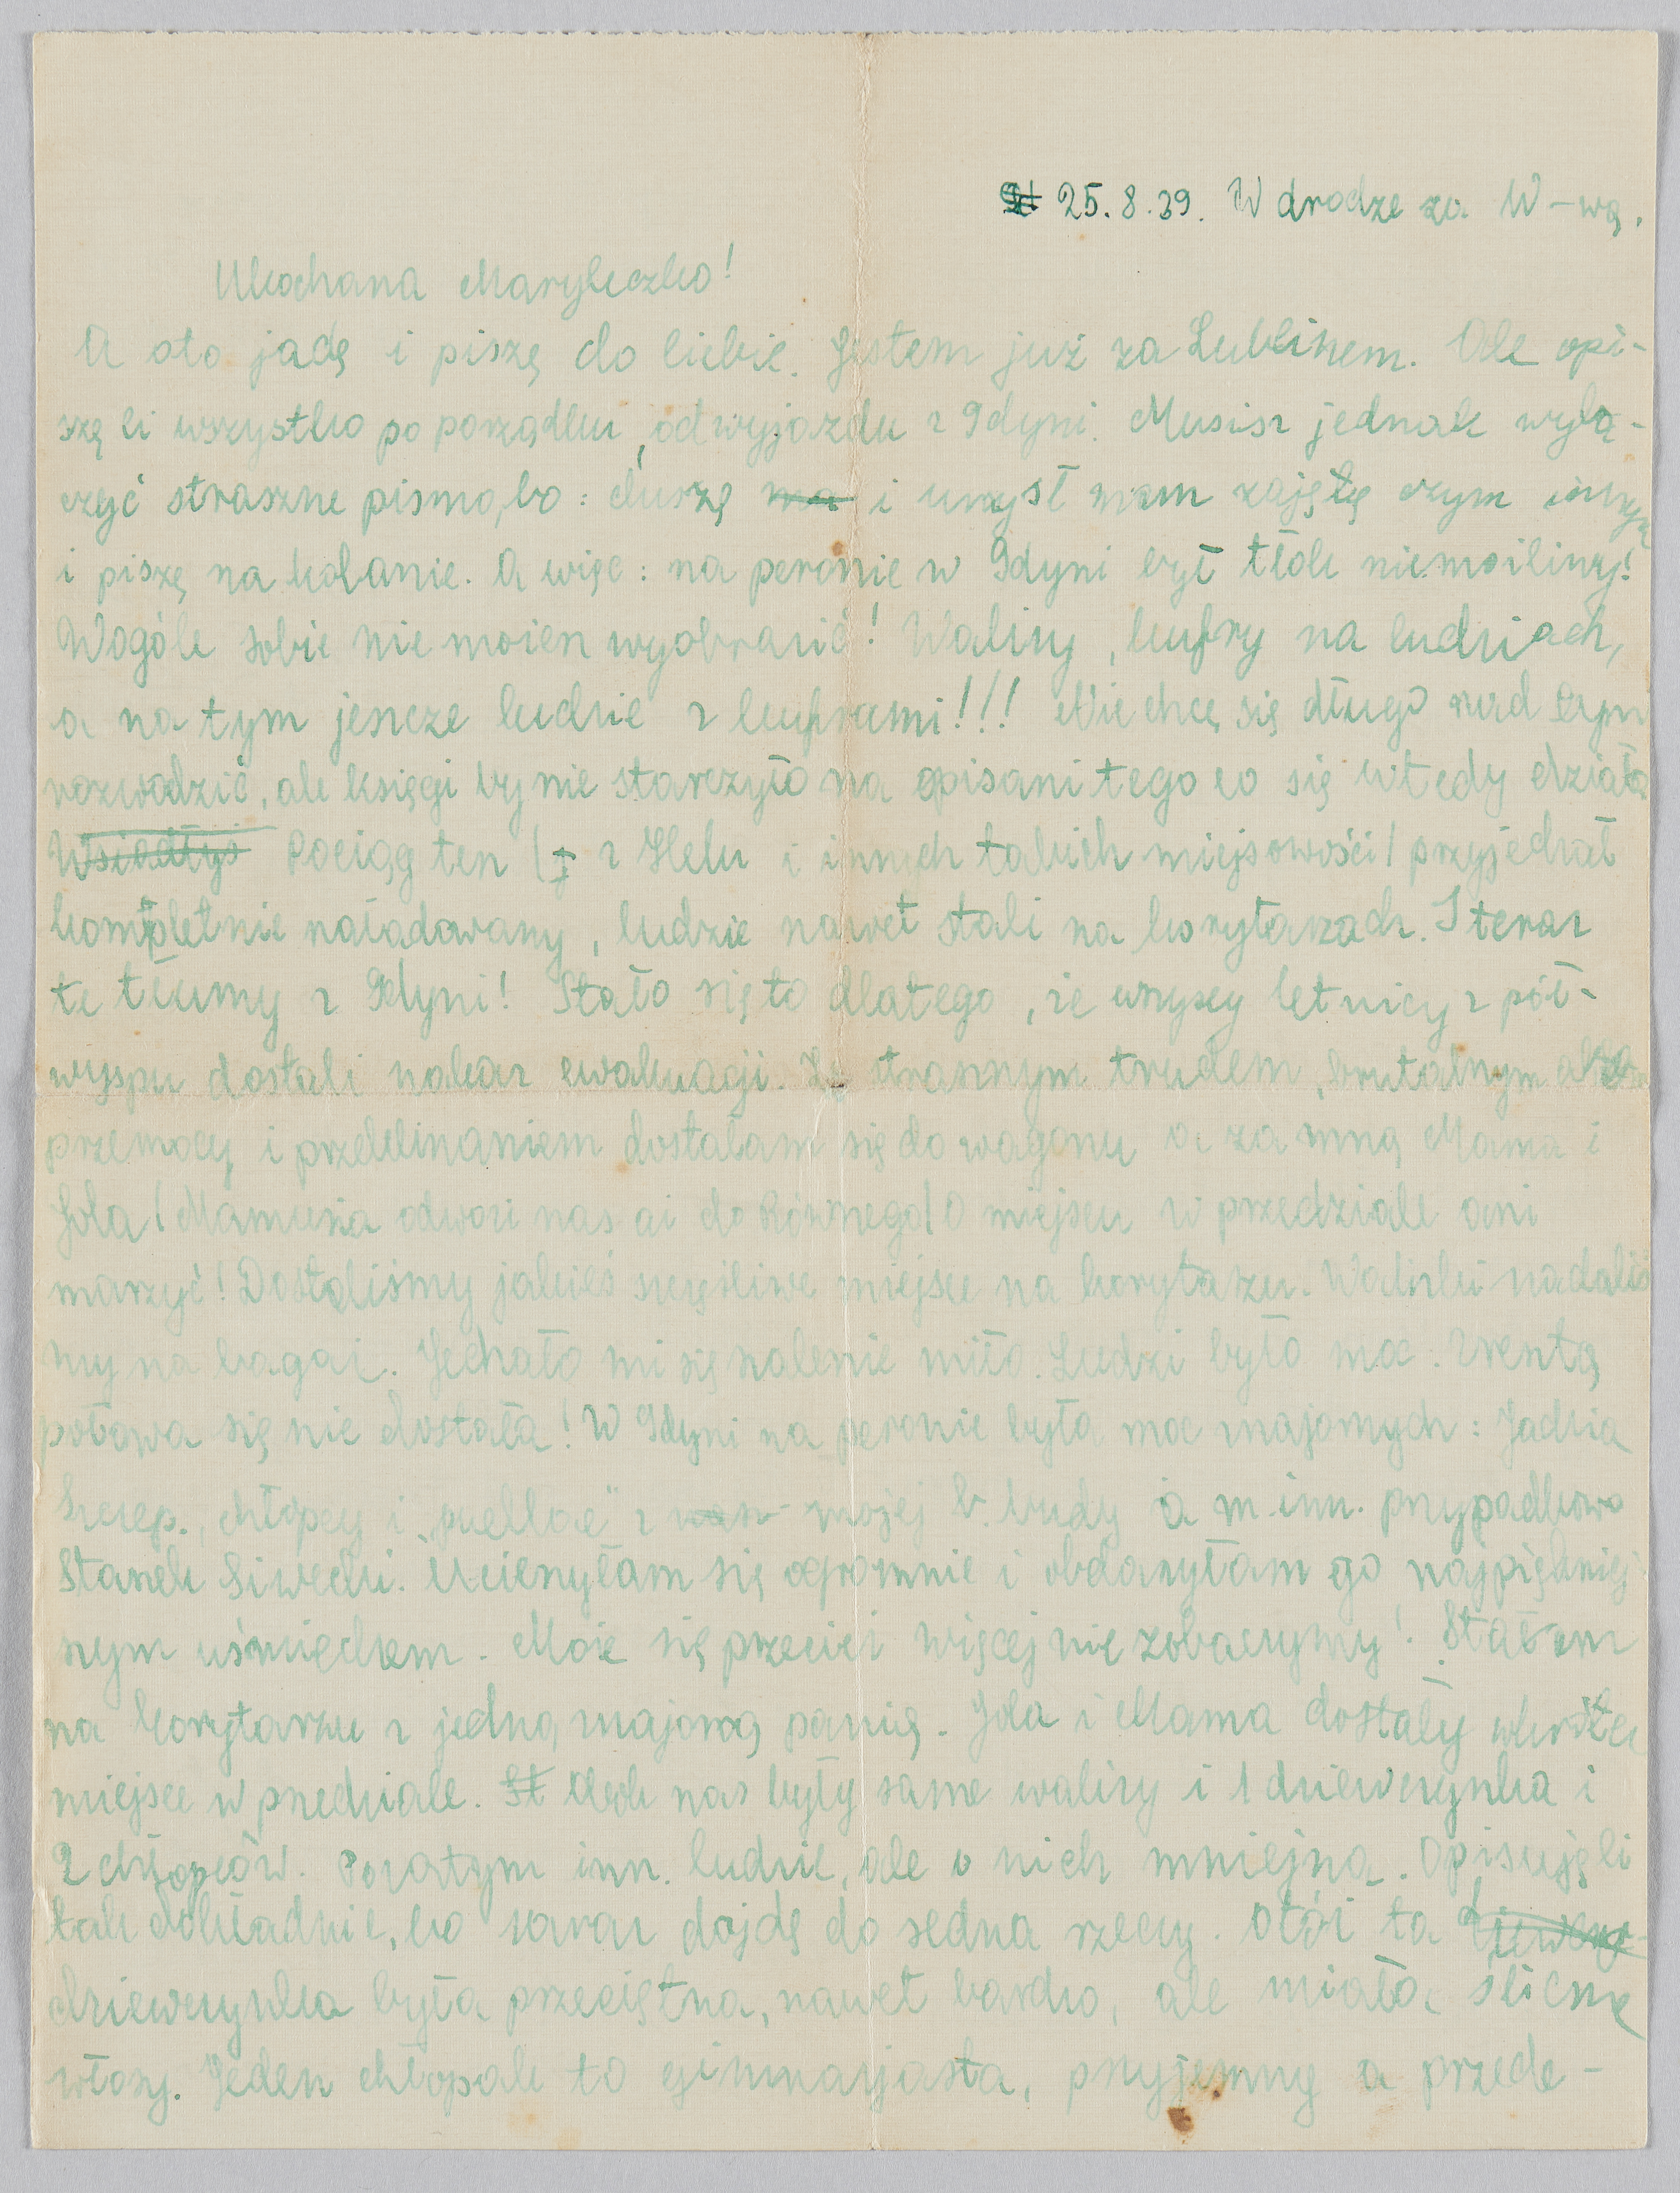 25.8.39. W drodze za W-wą.
Ukochana Maryleczko!
A oto jadę i piszę do Ciebie. Jestem już za Lublinem. Ale opi-
szę Ci wszystko po porządku, od wyjazdu z Gdyni. Musisz jednak wyba-
czyć straszne pismo, bo: duszę ma i umysł mam zajętę czym innym
i piszę na kolanie. A więc: na peronie w Gdyni był tłok niemożliwy!
Wogóle sobie nie możesz wyobrazić! Walizy, kufry na ludziach,
a na tym jeszcze ludzie z kuframi!!! Nie chcę się długo nad tym
rozwodzić, ale księgi by nie starczyło na opisani tego co się wtedy działo
Wsiadłyś Pociąg ten ( z Helu i innych takich miejsowości) przyjechał
kompletnie naładowany, ludzie nawet stali na korytarzach. I teraz
te tłumy z Gdyni! Stało się to dlatego, że wszyscy letnicy z pół-
wyspu dostali nakaz ewakuacji. Ze strasznym trudem, brutalnym
przemocą i przeklinaniem dostałam się do wagonu a za mną Mama i
Jola (Mamusia odwozi nas aż do Równego) O miejscu w przedziale ani
marzyć! Dostaliśmy jakieś szczęśliwe miejsce na korytarzu. Walizki nadaliś
my na bagaż. Jechało mi się szalenie miło. Ludzi było moc. Zresztą
połowa się nie dostała! W Gdyni na peronie była moc znajomych: Jadzia
Szczep., chłopcy i „puellae" z mojej b. budy a m. inn. przypadkowo
Stanek Siwecki. Ucieszyłam się ogromnie i obdarzyłam go najpiękniej
szym uśmiechem. Może się przecież więcej nie zobaczymy! Stałam
na korytarzu z jedną znajomą panią. Jola i Mama dostały wkrótce
miejsce w przedziale. St Obok nas były same walizy i 1 dziewczynka i
2 chłopców. Pozatym inn. ludzie, ale o nich mniejsza. Opisuję Ci
tak dokładnie, bo zaraz dojdę do sedna rzeczy. Otóż ta dziewczy-
dziewczynka była przeciętna, nawet bardzo, ale miała śliczne
włosy. Jeden chłopak to gimnazjasta, przyjemny a przede-